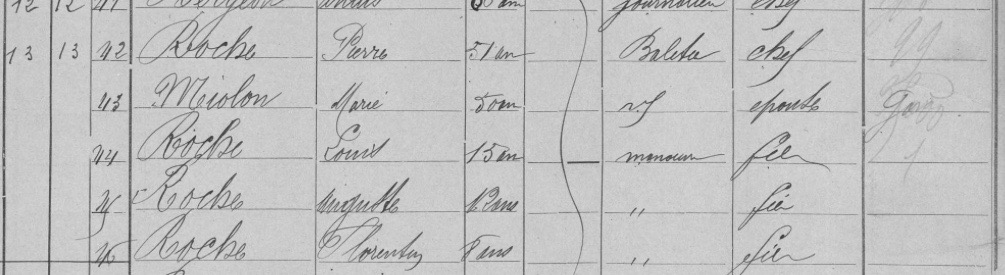 12 12 41 ans journalier chef
13 13 42 Roche Pierre 51 an chef
43 Miolon Marie 50 an épouse
44 Roche Louis 15 an manoeuv fils
45 Roche Auguste 12 ans " fils
46 Roche Florentin 8 ans " fils